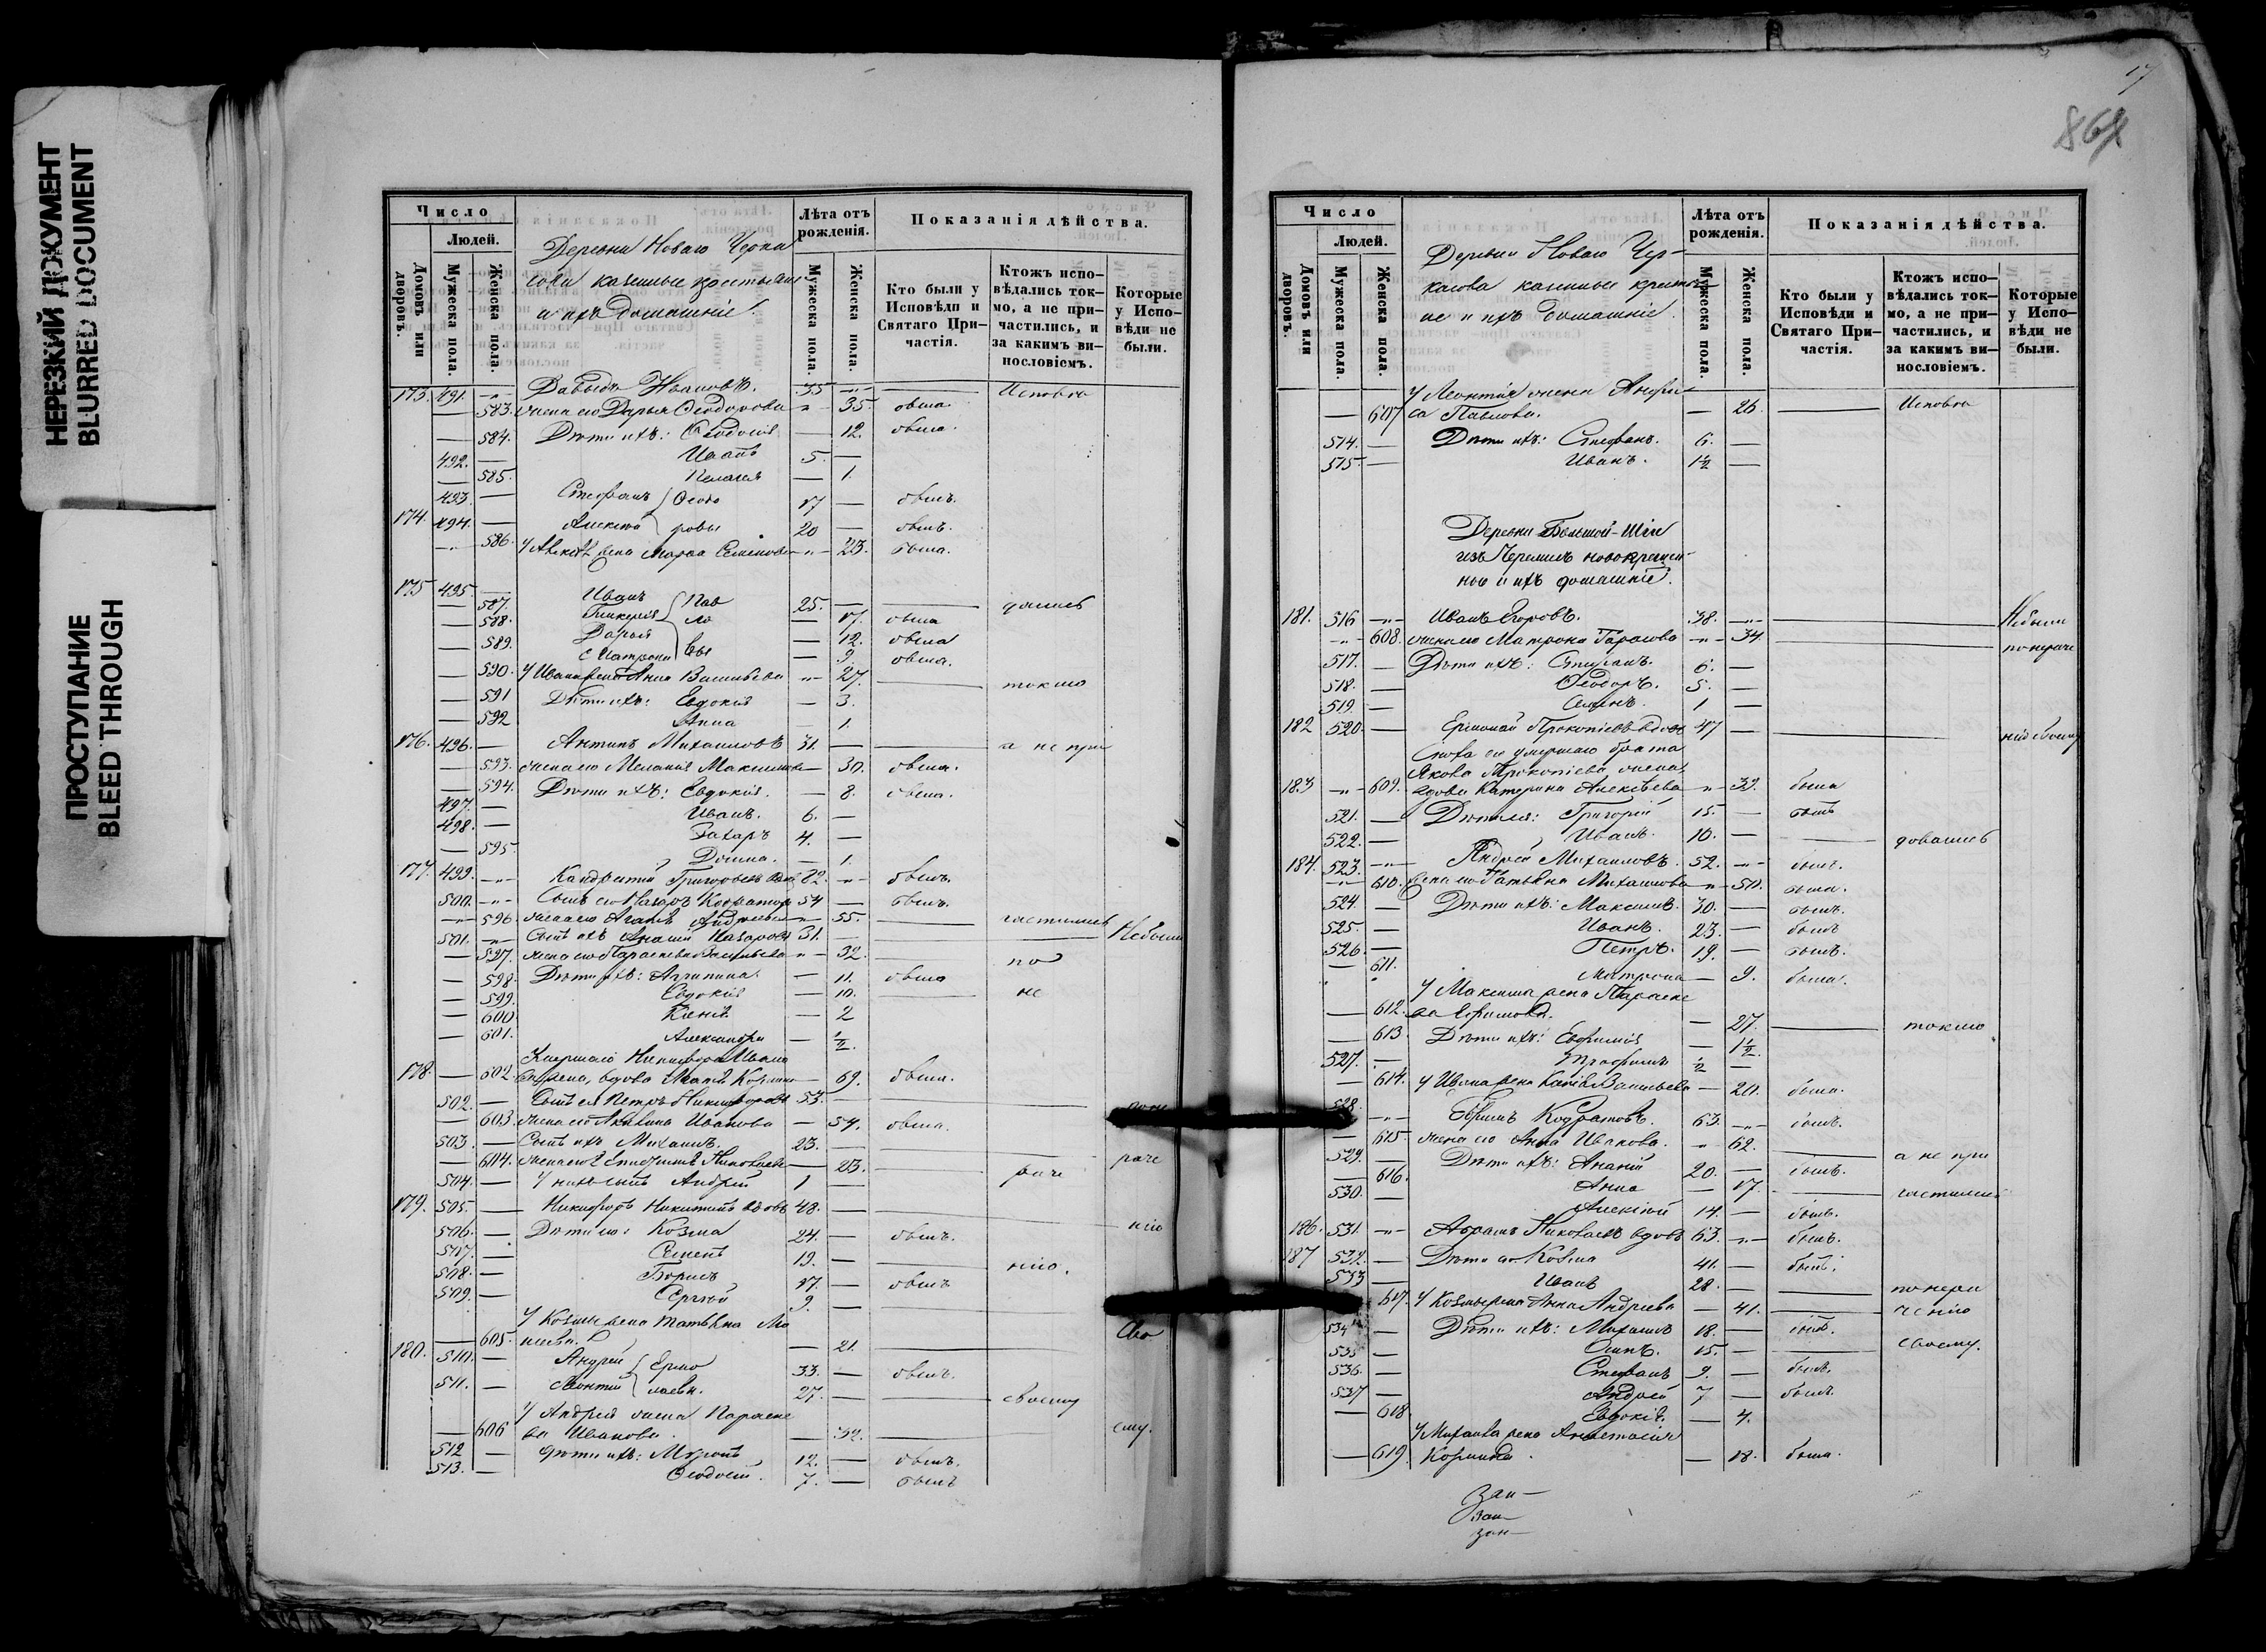 НЕРЕЗКИЙ ДОКУМЕНТ
BLURRED DOCUMENT
ПРОСТУПАНИЕ
BLEED THROUGH
Число
Людей.
Домовъ или дворовъ.
Мужеска пола.
Женска пола.
Деревни Новаго Черка
сова казенные крестьяне
и ихъ домашніе.
Лѣта отъ рожденія.
Мужеска пола.
Женска пола.
Показанія дѣйства.
Кто были у Исповѣди и Святаго При-частія.
Ктожъ испо-вѣдались ток-мо, а не при-частились, и за какимъ ви-нословіемъ.
Которые у Испо-вѣди не были.
173. 491. Давыдъ Ивановъ. 35 — Исповѣ
583. жена его Дарья Ѳеодорова 35. была
584. Дѣти ихъ: Ѳеодосія 12. была.
492. Иванъ 5.
585. Пелагея 1.
493. Стефанъ Ѳеодо 17 былъ.
174. 494. Алексѣй ровы 20 былъ.
586. у Алексѣя жена Марѳа Семенова 23. была.
175 495. Иванъ Пав 25. дались
587. Гликерія ло 17. была
588. Дарья вы 12. была
589. Матрона 9. была.
590. у Ивана жена Анна Васильева 27. токмо
591 Дѣти ихъ: Евдокія 3.
592 Анна 1.
176. 496. Антипъ Михаиловъ 31. а не при
593. жена его Меланія Максимова 30. была.
594. Дѣти ихъ: Евдокія. 8. была.
497. Иванъ. 6.
498. Захаръ 4.
595. Домна. 1.
177. 499. Кандратій Григорьевъ вдов 82. былъ.
500. Сынъ его Назаръ Кодратор 54 былъ.
596 жена его Агапія Андреева 55. частились
501. Сынъ ихъ Ананій Назаровъ 31. Небыли
597. жена его Параскева Васильева 32. по
598. Дѣти ихъ: Агрипина. 11. была
599. Евдокія 10. не
600 Ксенія 2
601. Александра ½.
Умершаго Никифора Ивано
178. 602. ва жена, вдова Агапія Козмина 69. была.
502. Сынъ ея Петръ Никифоровъ 53. поне
603. жена его Акилина Иванова 54. была.
503. Сынъ ихъ Михаилъ. 23. раче
604. жена его Епистимія Николаева 23. раче
504. У нихъ сынъ Андрей 1
179. 505. Никифоръ Никитинъ вдовъ 48. нію
506. Дѣти его: Козма 24. былъ.
507. Семенъ 19. нію.
508. Борисъ 17. былъ
509. Сергѣй 9.
У Козмы жена Татьяна Ма
605. 21. Сво
180. 510. Андрей Ермо 33. былъ.
511. Леонтій лаевы. 27. своему
У Андрея жена Параске
606 ва Иванова. 32. ему.
512 Дѣти ихъ: Миронъ 12. былъ.
513. Ѳеодосій. 7. былъ
17
864
Число
Людей.
Домовъ или дворовъ.
Мужеска пола.
Женска пола.
Деревни Новаго Чер-
касова казенные крестья-
не и ихъ домашніе.
Лѣта отъ рожденія.
Мужеска пола.
Женска пола.
Показанія дѣйства.
Кто были у Исповѣди и Святаго При-частія.
Ктожъ испо-вѣдались ток-мо, а не при-частились, и за какимъ ви-нословіемъ.
Которые у Испо-вѣди не были.
У Леонтія жена Анфи
607 са Павлова. 26. Исповѣ
514. Дѣти ихъ: Стефанъ. 6.
515. Иванъ. 1½
Деревни Большой-Шіи
изъ Черемисъ новокрещен-
ные и ихъ домашніе.
181. 516 Иванъ Егоровъ. 38. Небыли
608. жена его Матрона Гарасова 34. понераче
517. Дѣти ихъ: Стефанъ. 6.
518. Ѳеодоръ. 5.
519. Семенъ. 1
182 520. Ермолай Прокопіевъ вдовъ 47 нію своему
Сноха его умершаго брата
Якова Прокопіева жена,
183 609. вдова Катерина Алексѣева 32. была
521. Дѣти ея: Григорій 15. былъ
522. Иванъ. 10. довались
184. 523. Андрей Михаиловъ. 52. былъ.
610. жена его Татьяна Михаилова 50. была.
524. Дѣти ихъ: Максимъ. 30. былъ.
525. Иванъ. 23. былъ
526. Петръ. 19. былъ.
611. Матрона 9. была.
У Максима жена Параске
612. ва Ефимова. 27. токмо
613. Дѣти ихъ: Евфимія 1½.
527. Трофимъ ½
614. У Ивана жена Ксенія Васильева 20. была.
528. Ефимъ Кодратовъ. 63. былъ.
615. жена его Анна Иванова. 62. а не при
529. Дѣти ихъ: Ананій 20. былъ.
616. Анна 17. частились
530. Алексѣй 14. былъ.
186. 531. Абрамъ Николаевъ вдовъ 63. былъ.
187 532. Дѣти его Козма 41. былъ.
533 Иванъ 28. понера
617. У Козмы жена Анна Андреева 41. ченію
534 Дѣти ихъ: Михаилъ 18. былъ.
535 Осипъ. 15. своему.
536. Стефанъ 9. былъ.
537 Андрей 7 былъ.
618. Евдокія. 4.
У Михаила жена Анастасія
619. 18. была.